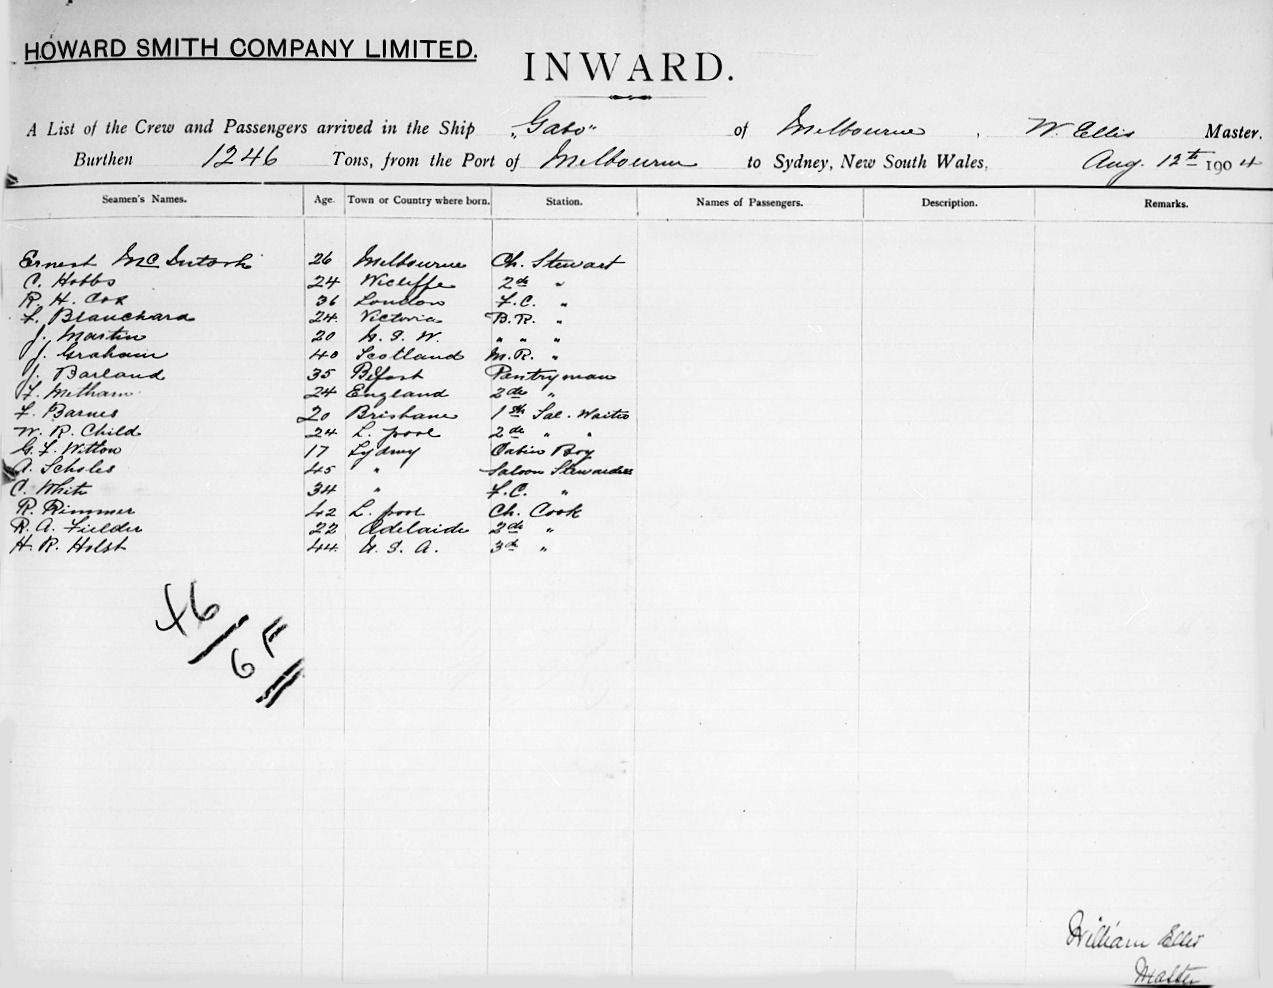 HOWARD SMITH COMPANY LIMITED.
INWARD.
A List of the Crew and Passengers arrived in the Ship "Gabo" of Melbourne, W. Ellis Master.
Burthen 1246 Tons, from the Port of Melbourne to Sydney, New South Wales, Aug. 12th 1904
Seamen's Names. Age. Town or Country where born. Station. Names of Passengers. Description. Remarks.
Ernest McIntosh 26 Melbourne Ch. Stewart
C. Hobbs 24 Wicliffe 2nd "
R. H. Cox 36 London F.C. "
F. Blanchard 24 Victoria B.R. "
J. Martin 20 N. S. W. " " "
J. Graham 40 Scotland M.R. "
J. Barland 35 Belfast Pantryman
F. Metham 24 England 2nd "
F. Barnes 20 Brisbane 1st Sal. Waiter
W. R. Child 24 L. pool 2nd " "
G. F. Witton 17 Sydney Cabin Boy
A. Scholes 45 " Saloon Stewardess
C. White 34 " F.C. "
R. Rimmer 42 L. pool Ch. Cook
R. A. Fielder 22 Adelaide 2nd "
H. R. Holst 44 U. S. A. 3rd "
46
6F
William Ellis
Master